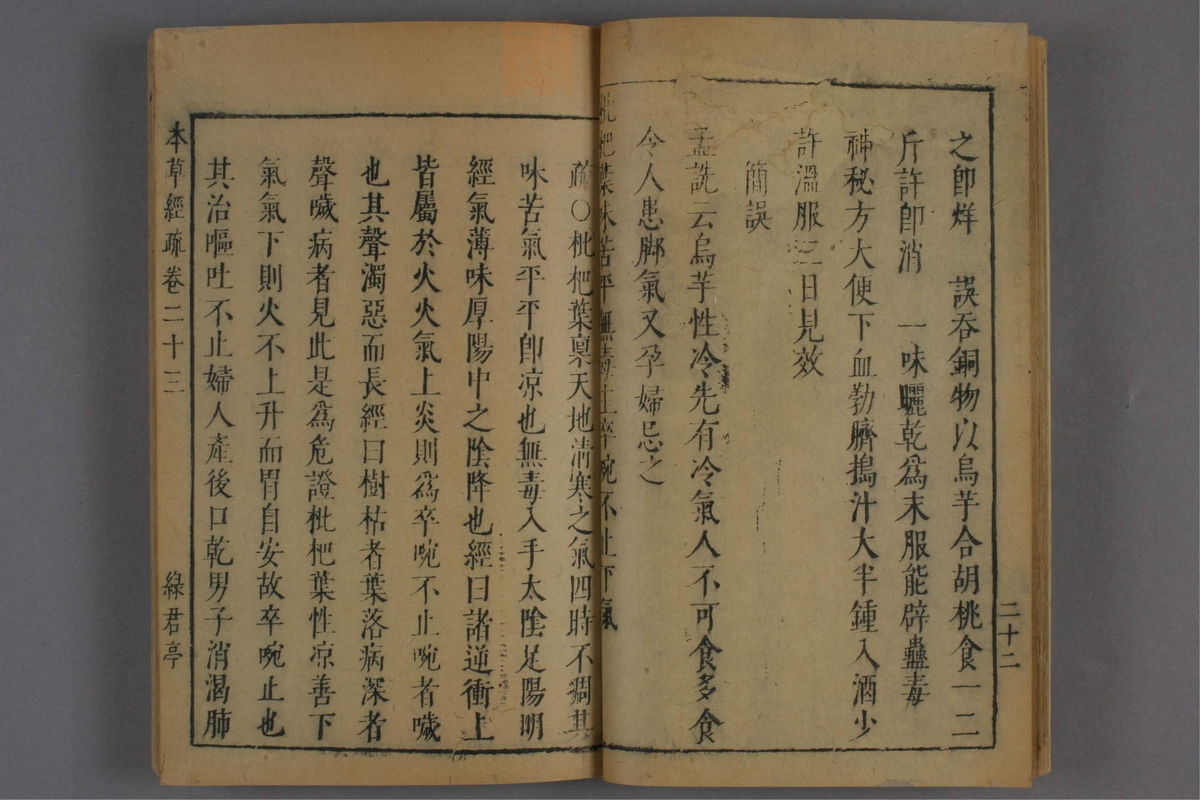 之卽烊　誤吞銅物以烏芋合胡桃食一二
斤許卽消　一味曬乾爲末服能辟蠱毒
神秘方大便下血勃臍搗汁大半鍾入酒少
許溫服三日見效
簡誤
孟詵云烏芋性冷先有冷氣人不可食多食
令人患脚氣又孕婦忌之
二十二
枇杷葉味苦平無毒主卒啘不止下氣
疏○枇杷葉稟天地清寒之氣四時不凋其
味苦氣平平卽凉也無毒入手太陰足陽明
經氣薄味厚陽中之陰降也經曰諸逆衝上
皆屬於火火氣上炎則爲卒啘不止啘者噦
也其聲濁惡而長經曰樹枯者葉落病深者
聲噦病者見此是爲危證枇杷葉性凉善下
氣氣下則火不上升而胃自安故卒啘止也
其治嘔吐不止婦人產後口乾男子消渴肺
本草經疏卷二十三
綠君亭